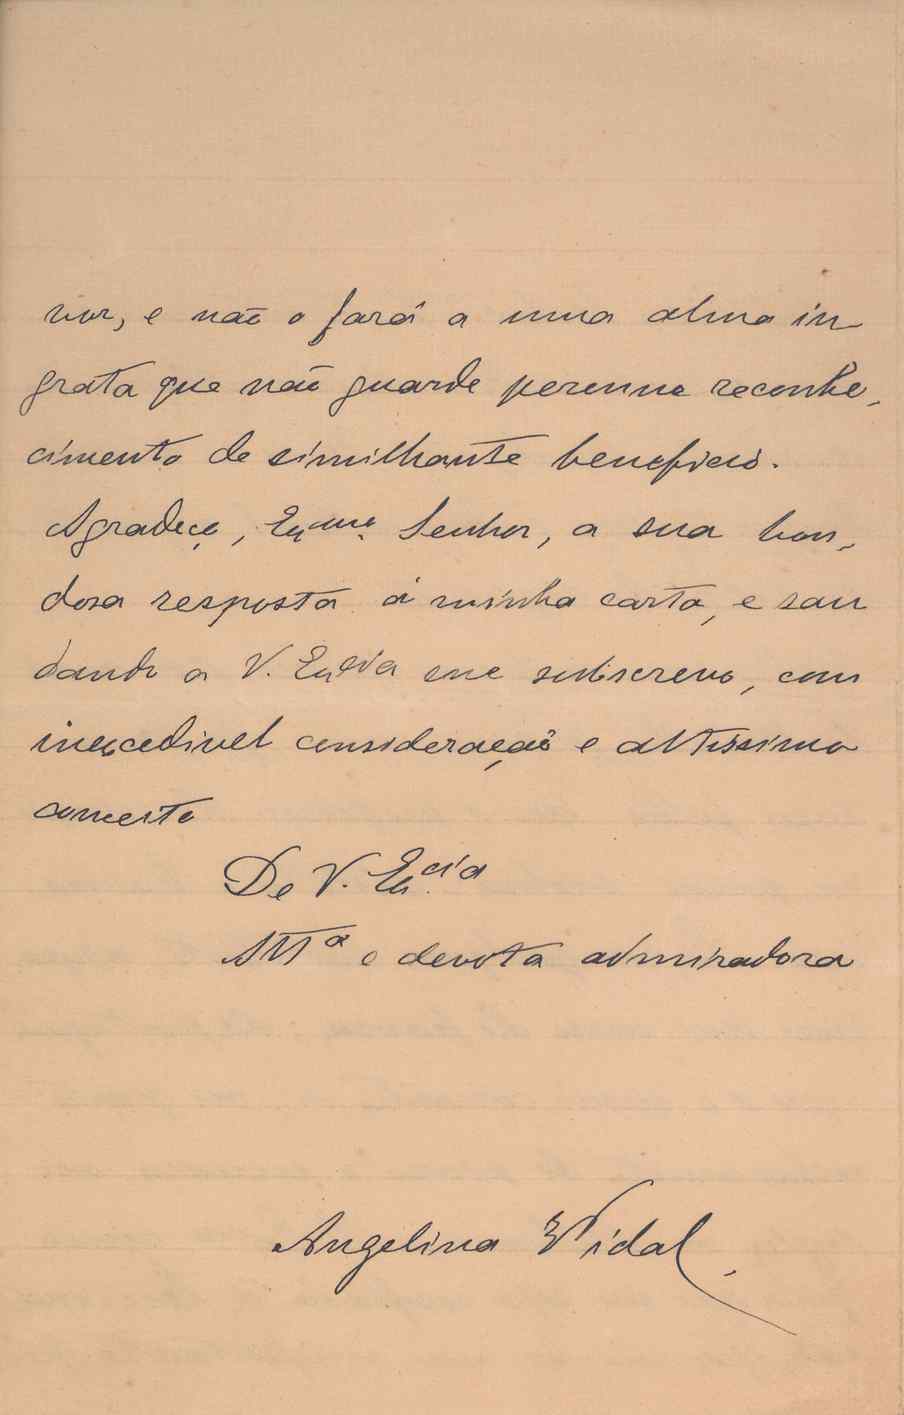 vor, e não o fará a uma alma in-
grata que não guarde perenne reconhe-
cimento de similhante beneficio.
Agradeço, Exmo. Senhor, a sua bon-
dosa resposta á minha carta, e sau
dando a V. Excia me subscrevo, com
inexcedivel consideração e altissimo
conceito
De V. Excia
Attª e devota admiradora
Angelina Vidal.